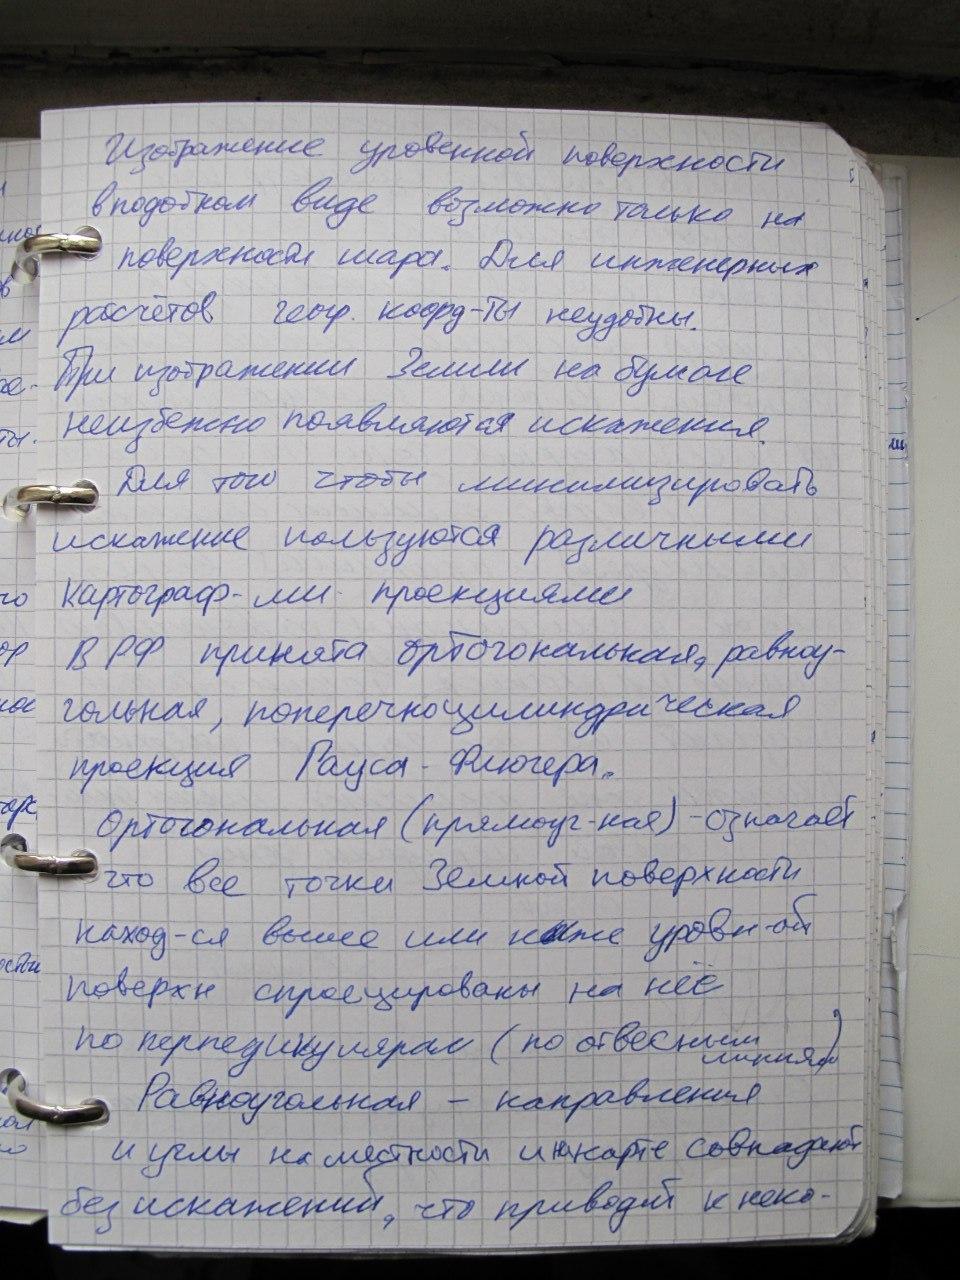 Изображение уровенной поверхности
в подобном виде возможно только на
поверхности шара. Для инженерных
расчётов геогр. коорд-ты неудобны.
При изображении Земли на бумаге
неизбежно появляются искажения.
Для того чтобы минимизировать
искажение пользуются различными
картограф-ми проекциями
В РФ принята ортогональная, равноу-
гольная, поперечноцилиндрическая
проекция Гауса-Флюгера.
Ортогональная (прямоуг-ная) - означает
что все точки Земной поверхности
наход-ся выше или ниже уровн-ой
поверхн спроецированы на неё
по перпедикулярам (по отвесным
линиям)
Равноугольная – направления
и углы на местности и на карте совпадают
без искажений, что приводит к неко-